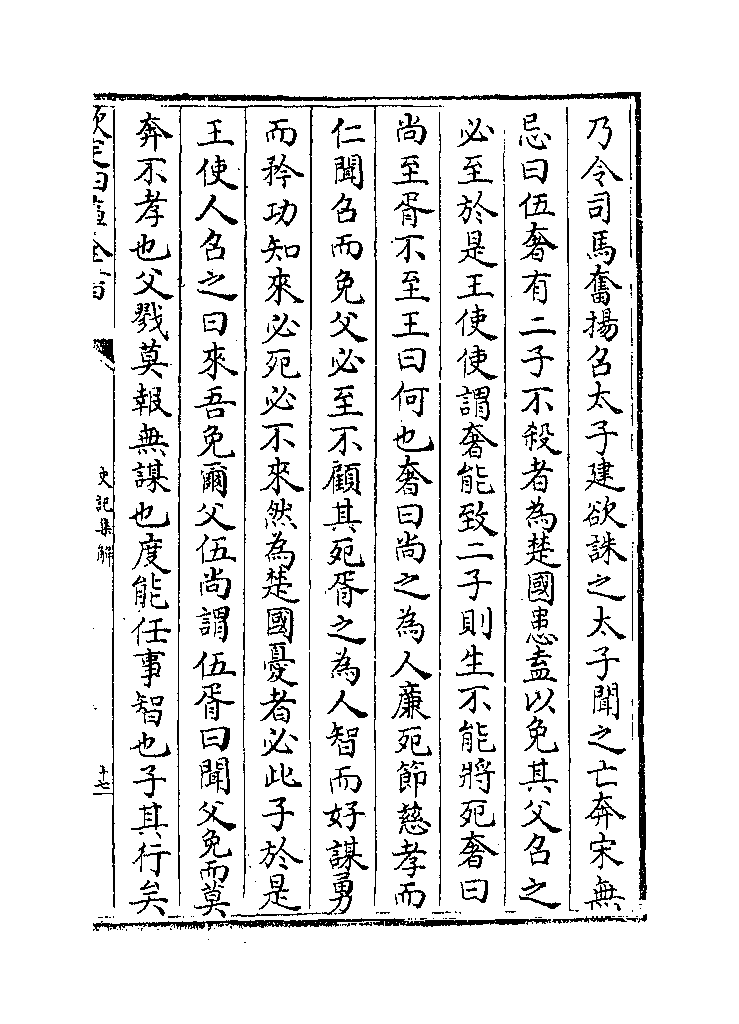 乃令司馬奮揚召太子建欲誅之太子聞之亡奔宋無
忌曰伍奢有二子不殺者為楚國患盍以免其父召之
必至於是王使使謂奢能致二子則生不能將死奢曰
尚至胥不至王曰何也奢曰尚之為人廉死節慈孝而
仁聞召而免父必至不顧其死胥之為人智而好謀勇
而矜功知來必死必不來然為楚國憂者必此子於是
王使人召之曰來吾免爾父伍尚謂伍胥曰聞父免而莫
奔不孝也父戮莫報無謀也度能任事智也子其行矣
欽定四庫全書
史記集解
十七